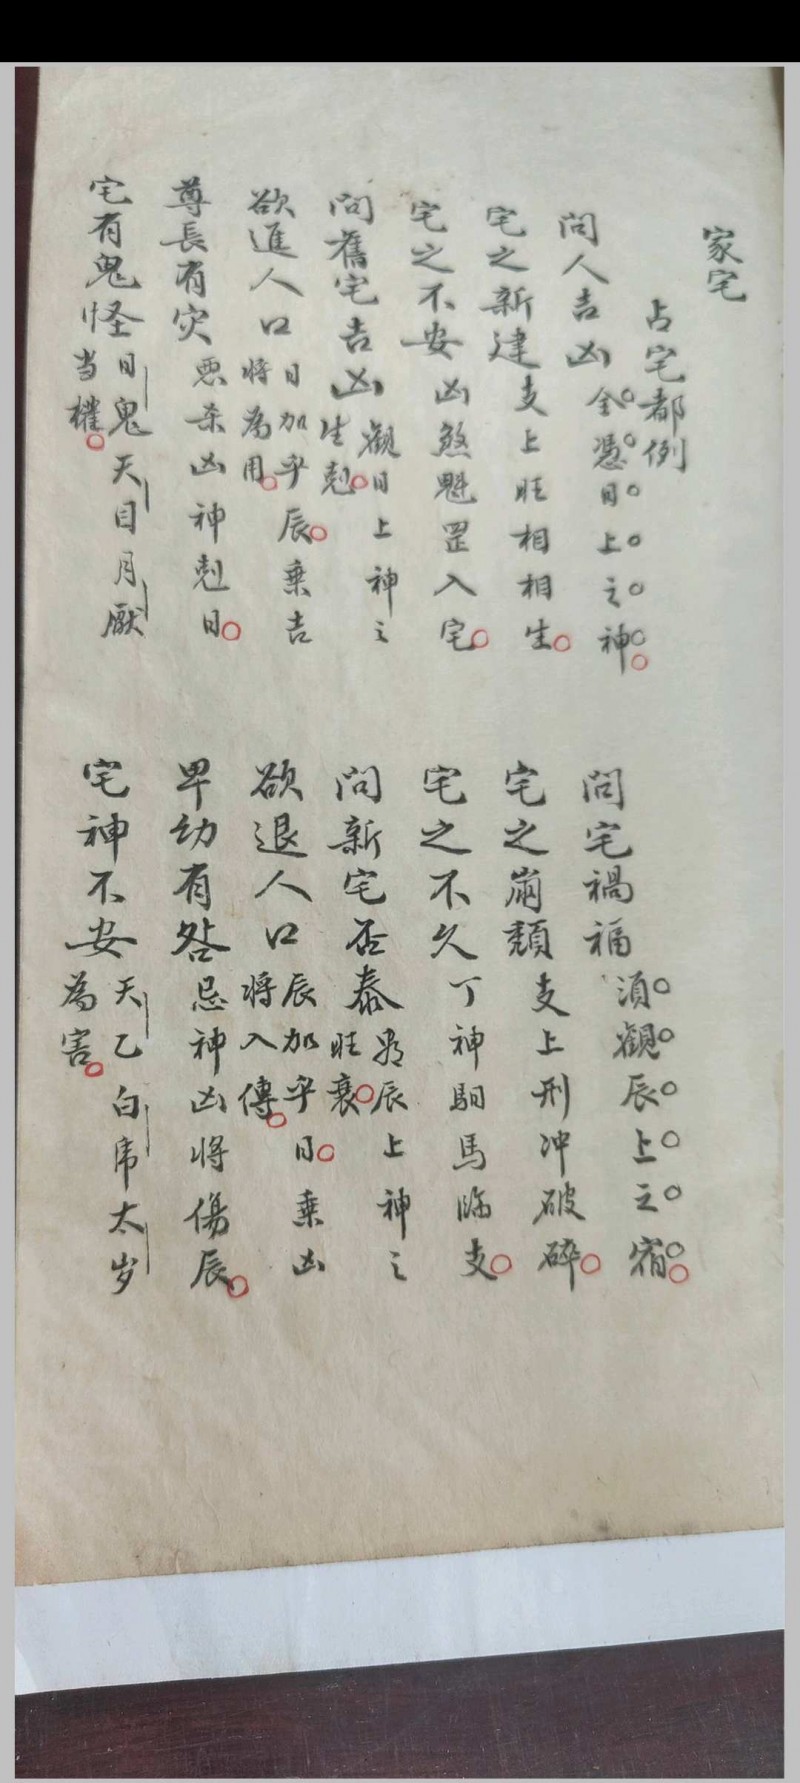 家宅
占宅都例
問人吉凶 全憑日上之神
問宅禍福 須觀辰上之宿
宅之新建 支上旺相相生
宅之崩頹 支上刑冲破碎
宅之不安 凶煞魁罡入宅
宅之不久 丁神馹馬臨支
問舊宅吉凶 觀日上神之生剋
問新宅否泰 辰上神之旺衰
欲進人口 日加乎辰乘吉將為用
欲退人口 辰加乎日乘凶將入傳
尊長有灾 惡杀凶神剋日
卑幼有咎 忌神凶将傷辰
宅有鬼怪 日鬼天目月厭当權
宅神不安 天乙白虎太岁為害